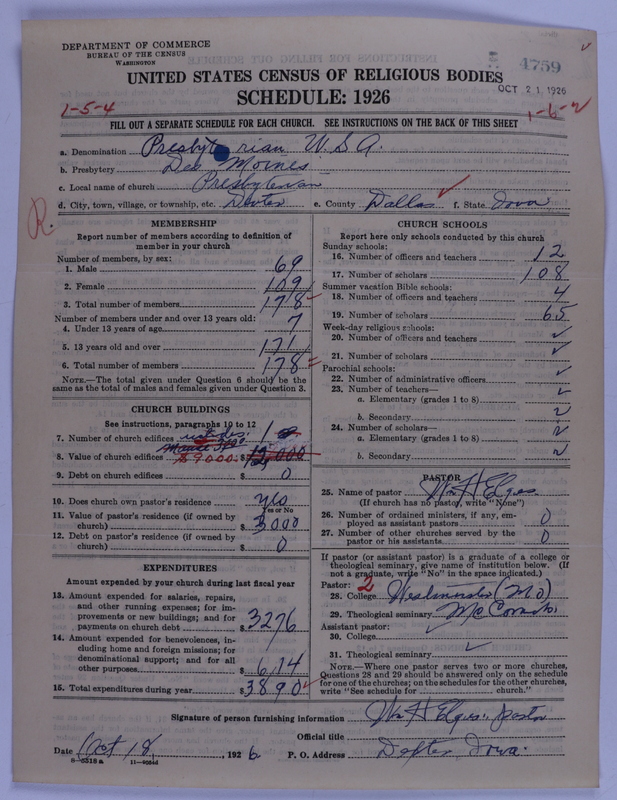 DEPARTMENT OF COMMERCE
BUREAU OF THE CENSUS
WASHINGTON
4759
UNITED STATES CENSUS OF RELIGIOUS BODIES
OCT 21, 1926
SCHEDULE: 1926
1-5-4
1-6-2
FILL OUT A SEPARATE SCHEDULE FOR EACH CHURCH. SEE INSTRUCTIONS ON THE BACK OF THIS SHEET
a. Denomination Presbyterian U.S.A.
b. Presbytery Des Moines
c. Local name of church Presbyterian
d. City, town, village, or township, etc. Dexter e. County Dallas f. State Iowa
R.
MEMBERSHIP
Report number of members according to definition of
member in your church
Number of members, by sex:
1. Male 69
2. Female 109
3. Total number of members 178
Number of members under and over 13 years old:
4. Under 13 years of age 7
5. 13 years old and over 171
6. Total number of members 178
NOTE.—The total given under Question 6 should be the
same as the total of males and females given under Question 3.
CHURCH BUILDINGS
See instructions, paragraphs 10 to 12
7. Number of church edifices 1
8. Value of church edifices $9000 $ 12,000
9. Debt on church edifices $ 0
10. Does church own pastor's residence yes
Yes or No
11. Value of pastor's residence (if owned by
church) $ 3000
12. Debt on pastor's residence (if owned by
church) $ 0
EXPENDITURES
Amount expended by your church during last fiscal year
13. Amount expended for salaries, repairs,
and other running expenses; for im-
provements or new buildings; and for
payments on church debt $ 3276
14. Amount expended for benevolences, in-
cluding home and foreign missions; for
denominational support; and for all
other purposes $ 614
15. Total expenditures during year $ 3890
CHURCH SCHOOLS
Report here only schools conducted by this church
Sunday schools:
16. Number of officers and teachers 12
17. Number of scholars 108
Summer vacation Bible schools:
18. Number of officers and teachers 4
19. Number of scholars 65
Week-day religious schools:
20. Number of officers and teachers ✓
21. Number of scholars ✓
Parochial schools:
22. Number of administrative officers ✓
23. Number of teachers—
a. Elementary (grades 1 to 8) ✓
b. Secondary ✓
24. Number of scholars—
a. Elementary (grades 1 to 8) ✓
b. Secondary ✓
PASTOR
25. Name of pastor Wm H Elges
(If church has no pastor, write "None")
26. Number of ordained ministers, if any, em-
ployed as assistant pastors 0
27. Number of other churches served by the
pastor or his assistants 0
If pastor (or assistant pastor) is a graduate of a college or
theological seminary, give name of institution below. (If
not a graduate, write "No" in the space indicated.)
Pastor: 2
28. College Westminster (Mo)
29. Theological seminary McCormick
Assistant pastor:
30. College ✓
31. Theological seminary ✓
NOTE.—Where one pastor serves two or more churches,
Questions 28 and 29 should be answered only on the schedule
for one of the churches; on the schedules for the other churches,
write "See schedule for church."
Signature of person furnishing information Wm H Elges, pastor
Official title
Date Oct 18, 1926 P. O. Address Dexter, Iowa.
8-5318 a 11-4064d